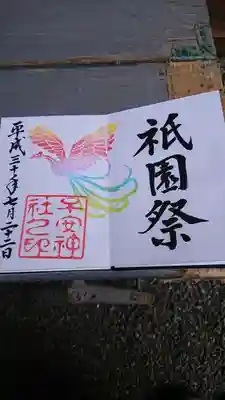 祇園祭
子安神
社之印
平成三十年七月二十二日